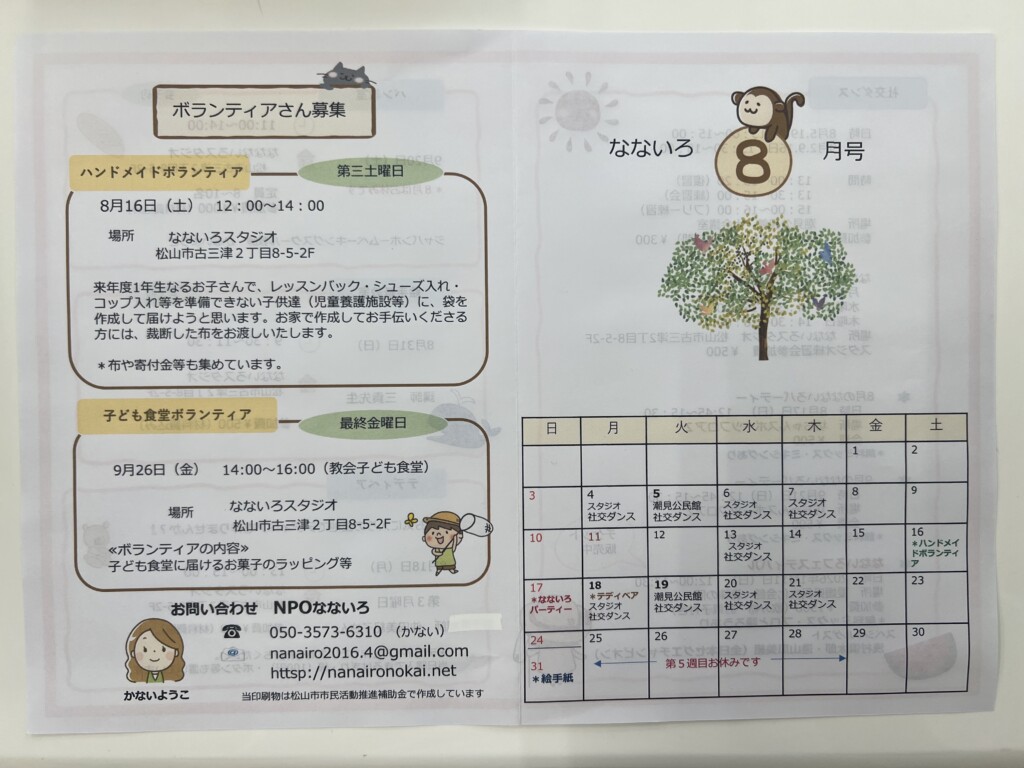 ボランティアさん募集
ハンドメイドボランティア
第三土曜日
8月16日（土） 12：00～14：00
場所 なないろスタジオ
松山市古三津２丁目8-5-2F
来年度1年生なるお子さんで、レッスンバック・シューズ入れ・
コップ入れ等を準備できない子供達（児童養護施設等）に、袋を
作成して届けようと思います。お家で作成してお手伝いくださる
方には、裁断した布をお渡しいたします。
＊布や寄付金等も集めています。
子ども食堂ボランティア
最終金曜日
9月26日（金） 14:00～16:00（教会子ども食堂）
場所 なないろスタジオ
松山市古三津２丁目8-5-2F
≪ボランティアの内容≫
子ども食堂に届けるお菓子のラッピング等
お問い合わせ NPOなないろ
050-3573-6310 （かない）
nanairo2016.4@gmail.com
http://nanaironokai.net
かないようこ
当印刷物は松山市市民活動推進補助金で作成しています
なないろ 8 月号
日 月 火 水 木 金 土
1 2
3 4 5 6 7 8 9
スタジオ 潮見公民館 スタジオ スタジオ
社交ダンス 社交ダンス 社交ダンス 社交ダンス
10 11 12 13 14 15 16
スタジオ ＊ハンドメイ
社交ダンス ドボランティ
ア
17 18 19 20 21 22 23
＊なないろ ＊テディベア 潮見公民館 スタジオ スタジオ
パーティー スタジオ 社交ダンス 社交ダンス 社交ダンス
社交ダンス
24 25 26 27 28 29 30
31 第５週目お休みです
＊絵手紙